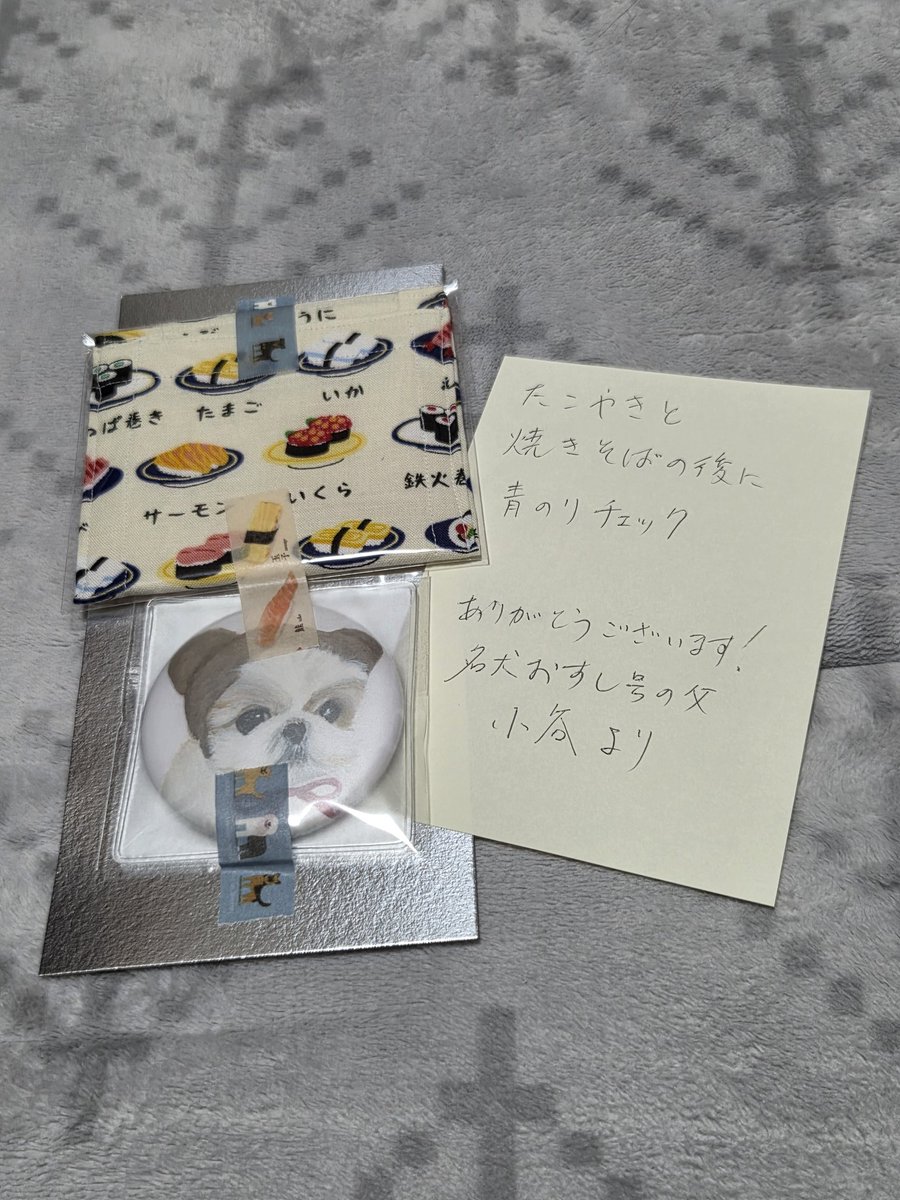 うに
たまご
いか
っぱ巻き
サーモン
いくら
鉄火巻
たこやきと
焼きそばの後に
青のりチェック
ありがとうございます!
名犬おすし号の父
小谷より